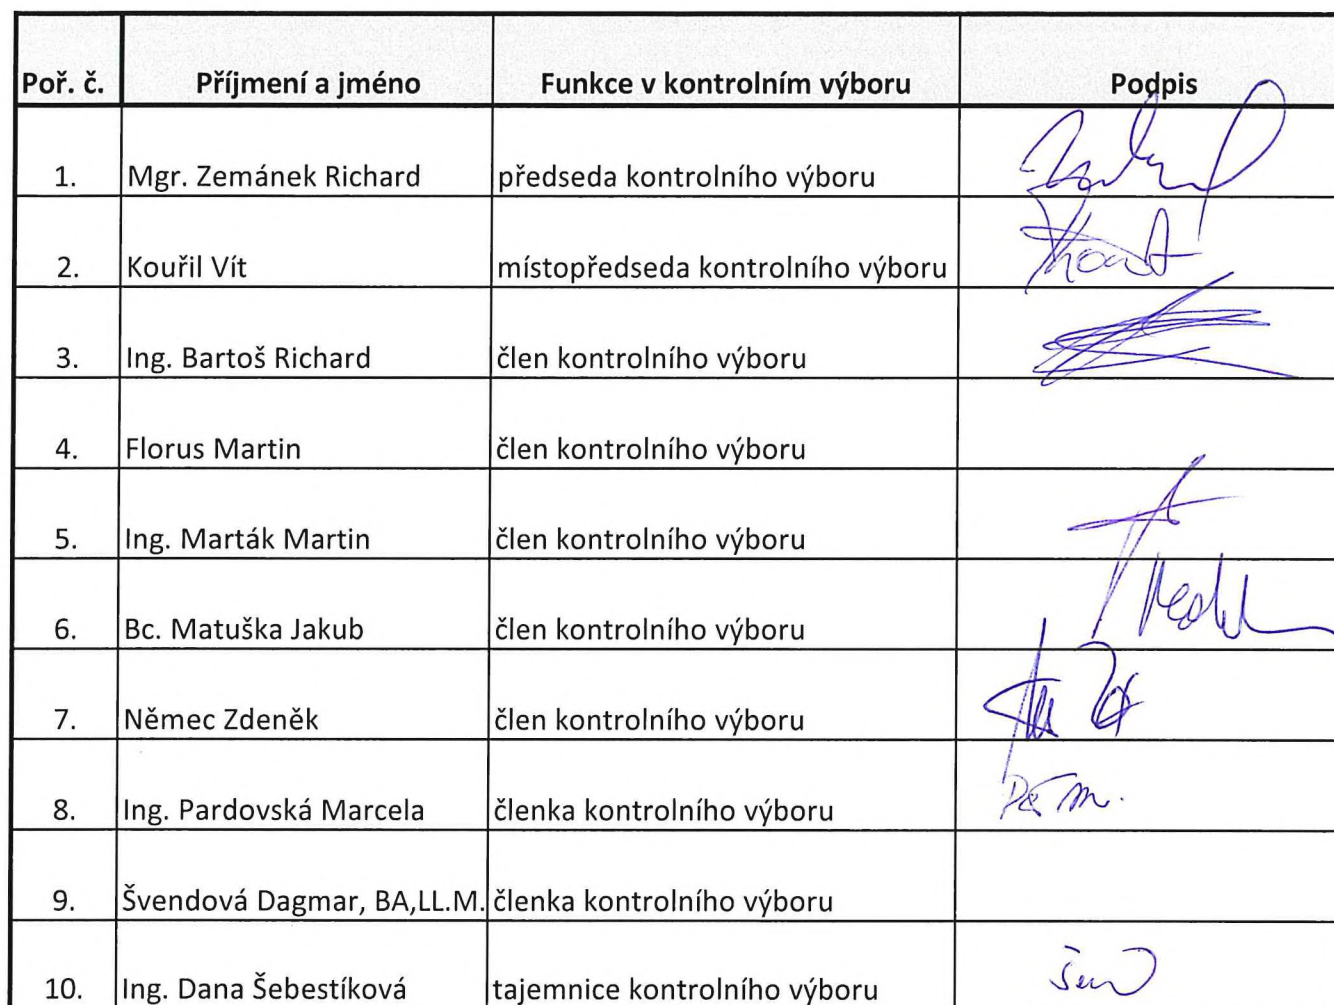 Poř. č. Příjmení a jméno Funkce v kontrolním výboru Podpis
1. Mgr. Zemánek Richard předseda kontrolního výboru
2. Kouřil Vít místopředseda kontrolního výboru
3. Ing. Bartoš Richard člen kontrolního výboru
4. Florus Martin člen kontrolního výboru
5. Ing. Marták Martin člen kontrolního výboru
6. Bc. Matuška Jakub člen kontrolního výboru
7. Němec Zdeněk člen kontrolního výboru
8. Ing. Pardovská Marcela členka kontrolního výboru
9. Švendová Dagmar, BA,LL.M. členka kontrolního výboru
10. Ing. Dana Šebestíková tajemnice kontrolního výboru